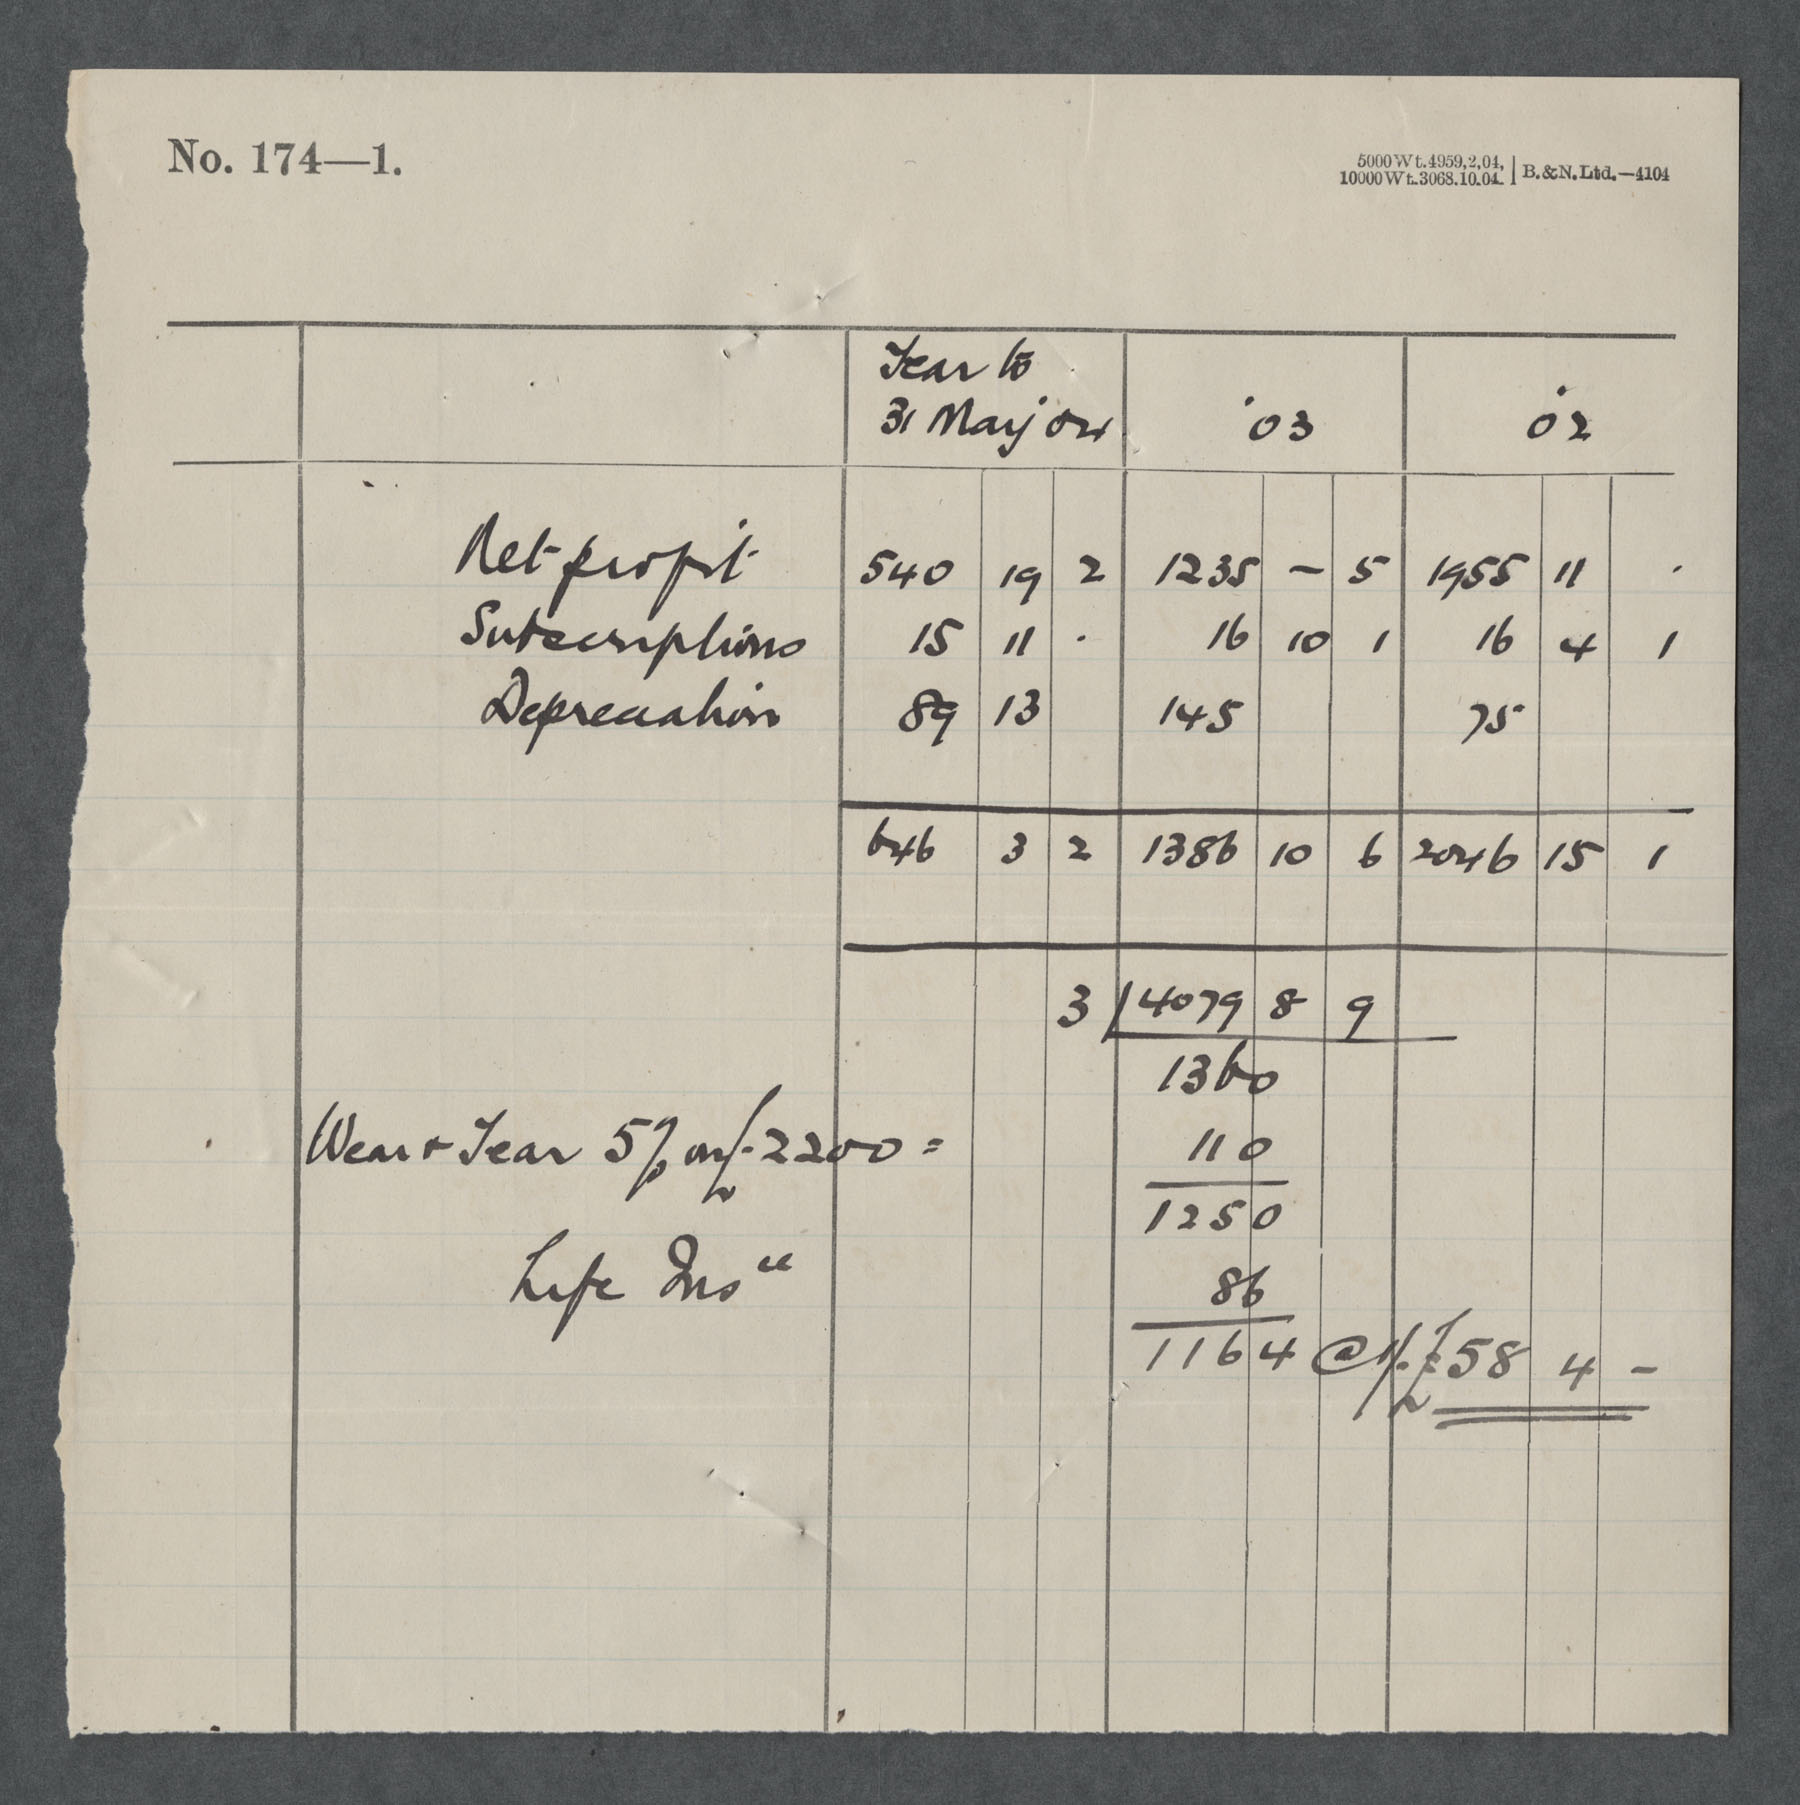 No. 174—1.
5000 Wt. 4959.2.04.
10000 Wt. 3068.10.04. | B. & N. Ltd.—4104
Year to
31 May '04 '03 '02
Net profit 540 19 2 1235 – 5 1955 11 .
Subscriptions 15 11 . 16 10 1 16 4 1
Depreciation 89 13 145 75
646 3 2 1386 10 6 2046 15 1
3 4079 8 9
1360
Wear + Tear 5% on £2200 = 110
1250
Life Insce 86
1164 @ 1/- = £58 4 –